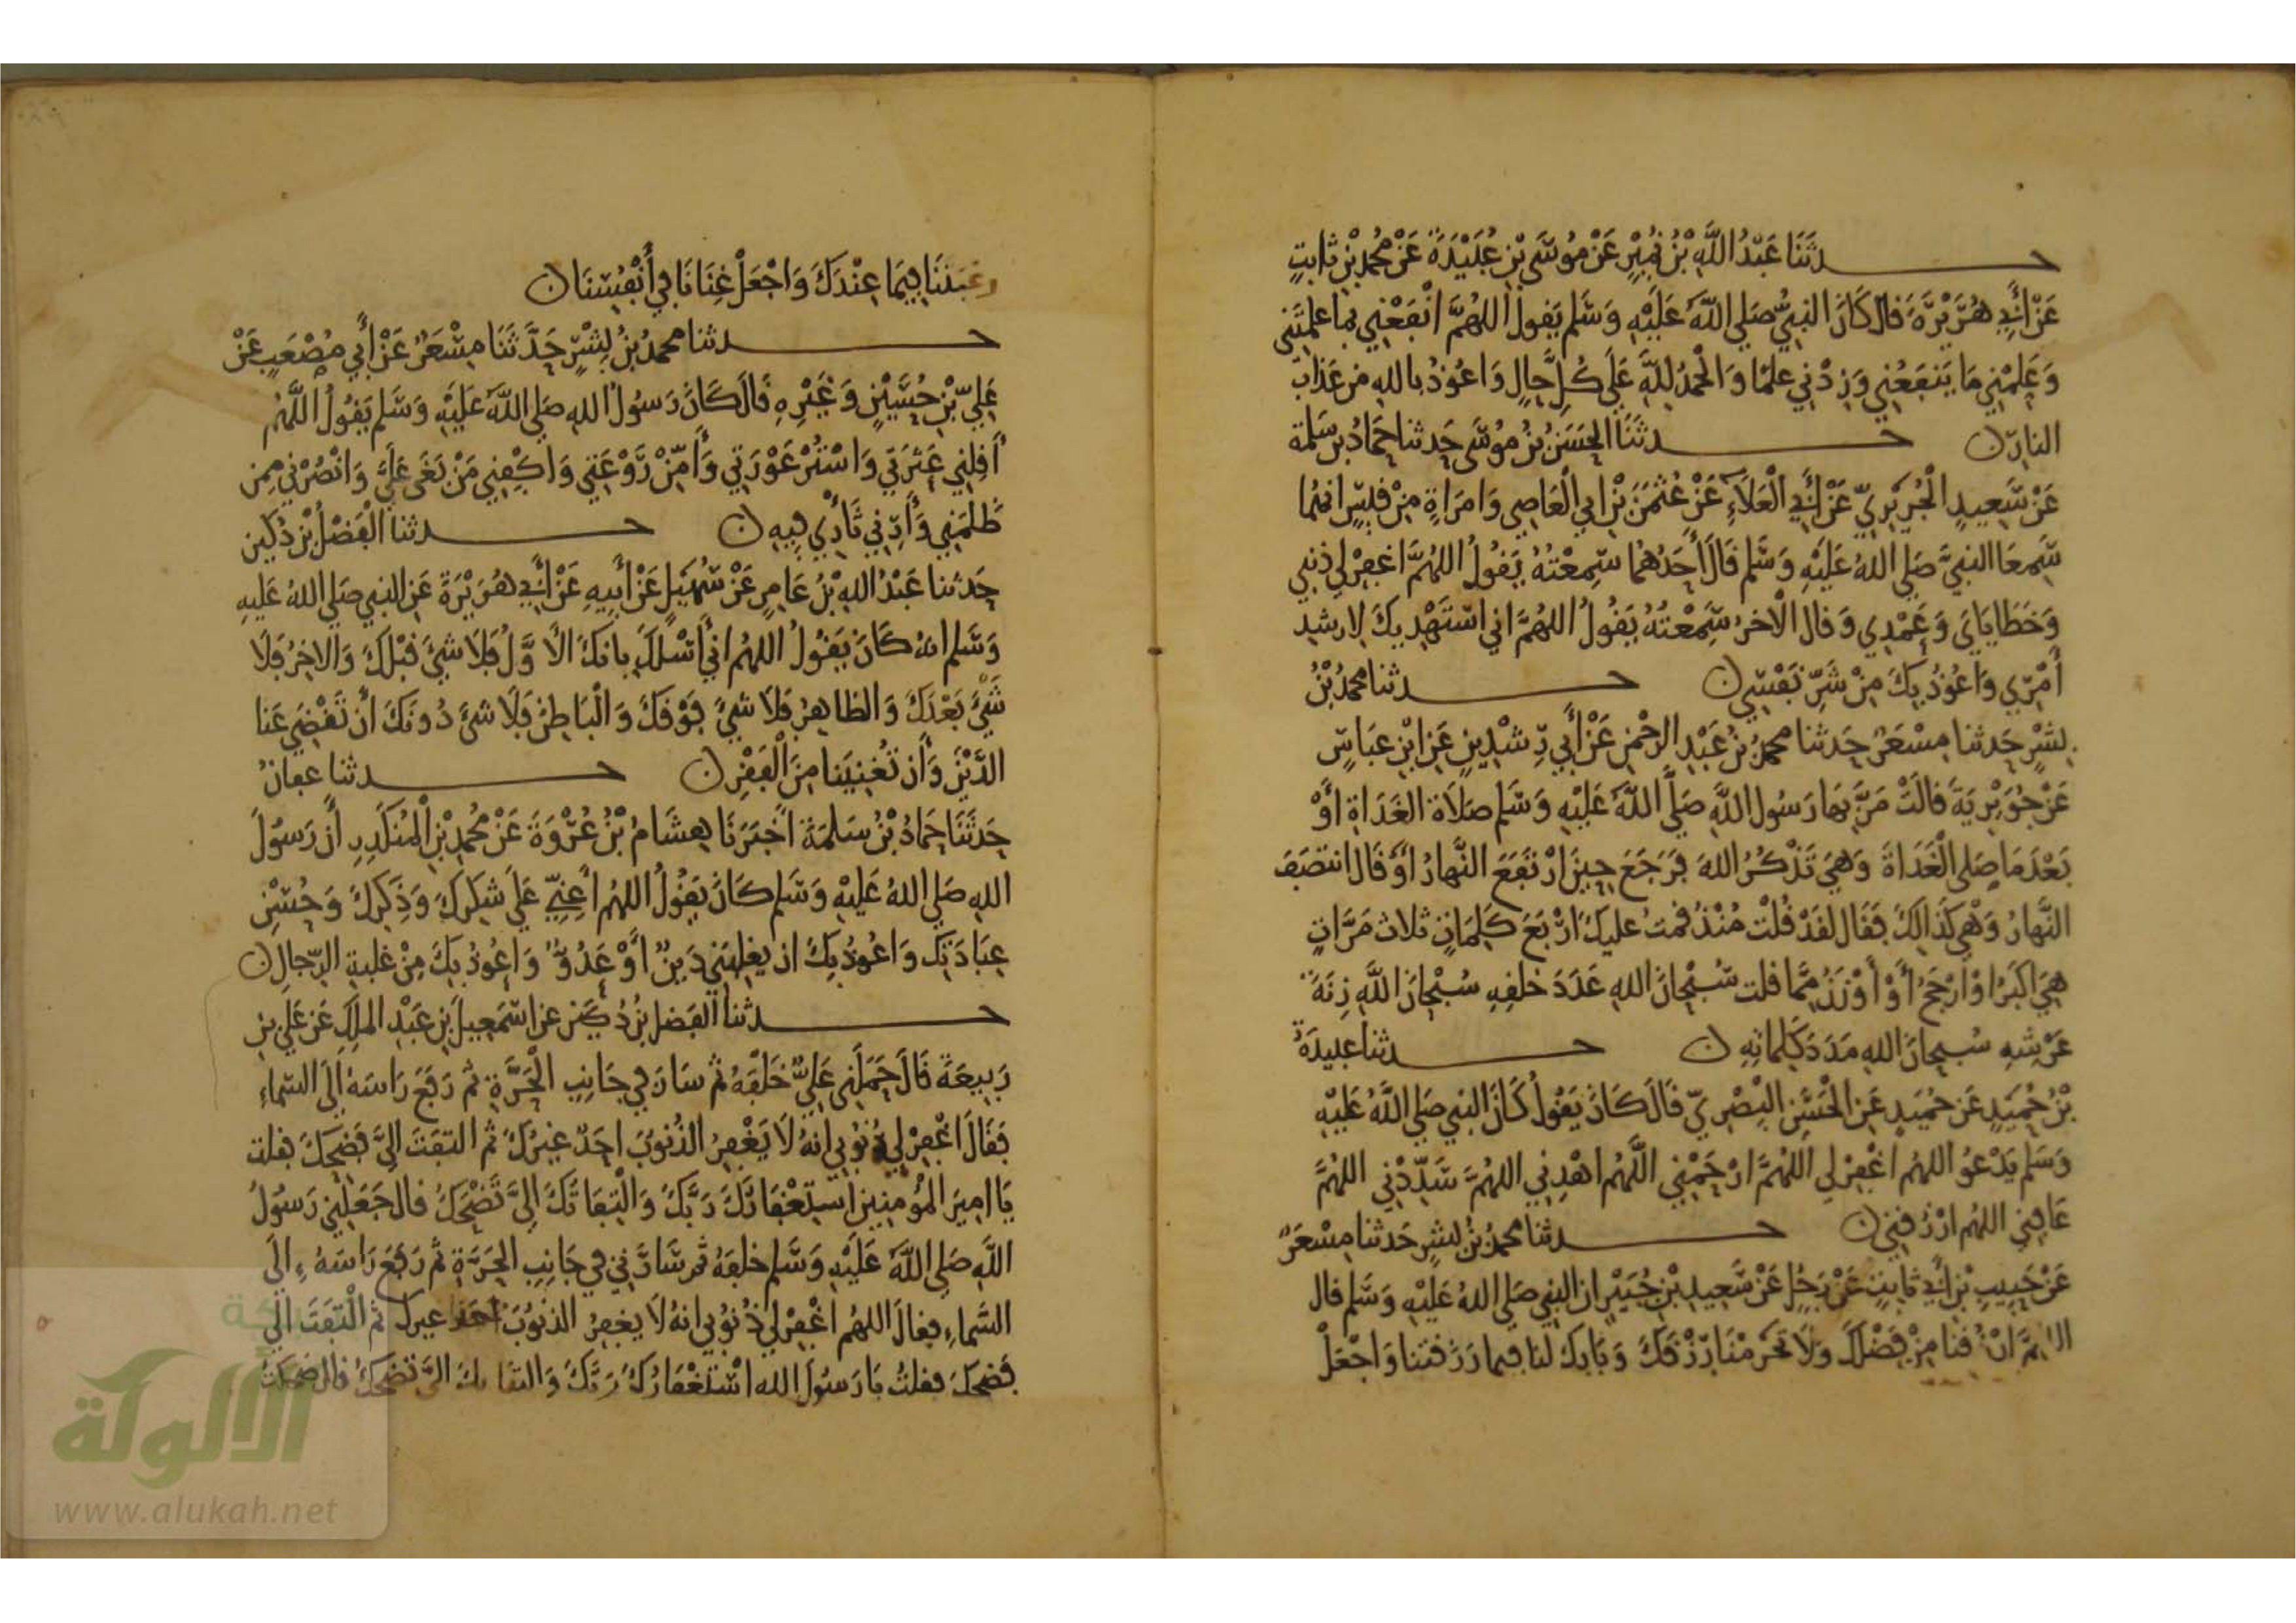 حدثنا عبد الله بن نمير عن موسى بن عبيدة عن محمد بن ثابت
عن أبي هريرة قال كان النبي صلى الله عليه وسلم يقول اللهم انفعني بما علمتني
وعلمني ما ينفعني وزدني علما والحمد لله على كل حال واعوذ بالله من عذاب
النار ن حدثنا الحسن بن موسى حدثنا حماد بن سلمة
عن سعيد الجريري عن أبي العلاء عن عثمن بن ابي العاصي وامراة من قيس انهما
سمعا النبي صلى الله عليه وسلم قال أحدهما سمعته يقول اللهم اغفر لي ذنبي
وخطاياي وعمدي وقال الآخر سمعته يقول اللهم اني استهديك لارشد
أمري واعوذ بك من شر نفسي ن حدثنا محمد بن
بشر حدثنا مسعر حدثنا محمد بن عبد الرحمن عن أبي رشدين عن ابن عباس
عن جويرية قالت مر بها رسول الله صلى الله عليه وسلم صلاة الغداة أو
بعد ما صلى الغداة وهي تذكر الله فرجع حين ارتفع النهار أو قال انتصف
النهار وهي كذالك فقال لقد قلت منذ قمت عليك اربع كلمات ثلاث مرات
هي اكبر او أرجح أو أوزن مما قلت سبحان الله عدد خلقه سبحان الله زنة
عرشه سبحان الله مدد كلماته ن حدثنا عبيدة
بن حميد عن حميد عن الحسن البصري قال كان يقول كان النبي صلى الله عليه
وسلم يدعو اللهم اغفر لي اللهم ارحمني اللهم اهدني اللهم سددني اللهم
عافني اللهم ارزقني ن حدثنا محمد بن بشر حدثنا مسعر
عن حبيب بن أبي ثابت عن رجل عن سعيد بن جبير ان النبي صلى الله عليه وسلم قال
اللهم ارزقنا من فضلك ولا تحرمنا رزقك وبارك لنا فيما رزقتنا واجعل
رغبتنا فيما عندك واجعل غنانا في أنفسنا ن
حدثنا محمد بن بشر حدثنا مسعر عن أبي مصعب عن
علي بن حسين وغيره قال كان رسول الله صلى الله عليه وسلم يقول اللهم
أقلني عثرتي واستر عورتي وأمن روعتي واكفني من بغى علي وانصرني ممن
ظلمني وأرني ثأري فيه ن حدثنا الفضل بن دكين
حدثنا عبد الله بن عامر عن سهيل عن أبيه عن أبي هريرة عن النبي صلى الله عليه
وسلم انه كان يقول اللهم اني أسلك بانك الأول فلا شئ قبلك والاخر فلا
شئ بعدك والظاهر فلا شئ فوقك والباطن فلا شئ دونك أن تقضي عنا
الدين وأن تغنينا من الفقر ن حدثنا عفان
حدثنا حماد بن سلمة أخبرنا هشام بن عروة عن محمد بن المنكدر أن رسول
الله صلى الله عليه وسلم كان يقول اللهم أعني على شكرك وذكرك وحسن
عبادتك واعوذ بك ان يغلبني دين أو عدو واعوذ بك من غلبة الرجال ن
حدثنا الفضل بن دكين عن اسمعيل بن عبد الملك عن علي بن
ربيعة قال حملني علي خلفه ثم سار في جانب الحرة ثم رفع راسه الى السماء
فقال اغفر لي ذنوبي انه لا يغفر الذنوب احد غيرك ثم التفت الي فضحك فقلت
يا امير المؤمنين استغفارك ربك والتفاتك الي تضحك قال جعلني رسول
الله صلى الله عليه وسلم خلفه ثم سار بي في جانب الحرة ثم رفع راسه الى
السماء فقال اللهم اغفر لي ذنوبي انه لا يغفر الذنوب احد غيرك ثم التفت الي
فضحك فقلت يا رسول الله استغفارك ربك والتفاتك الي تضحك قال ضحكت
الألوكة
www.alukah.net